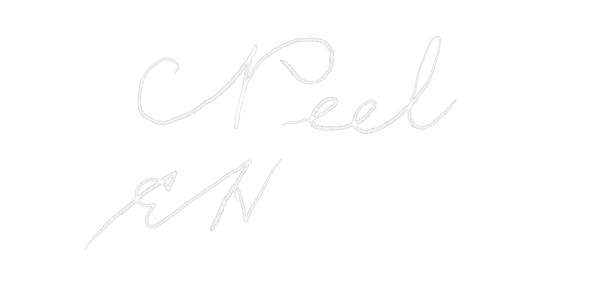 C Peel
EN